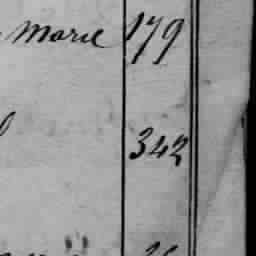 Marie 179
342